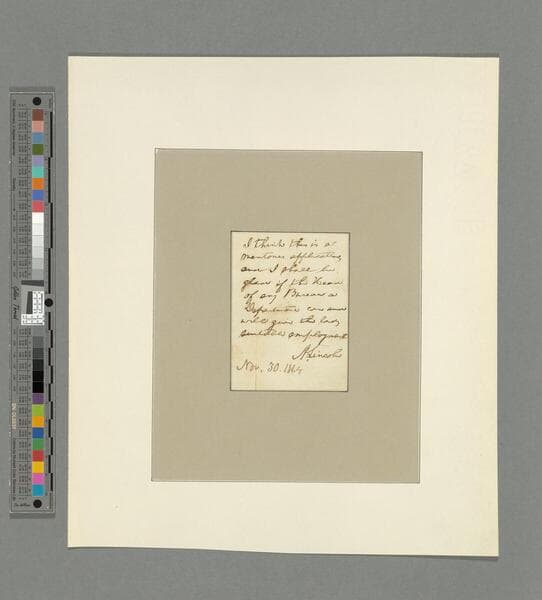 I think this is a
meritorious application,
and I shall be
glad if the Head
of any Bureau or
Department can and
will give the lady
suitable employment
A. Lincoln
Nov. 30. 1864